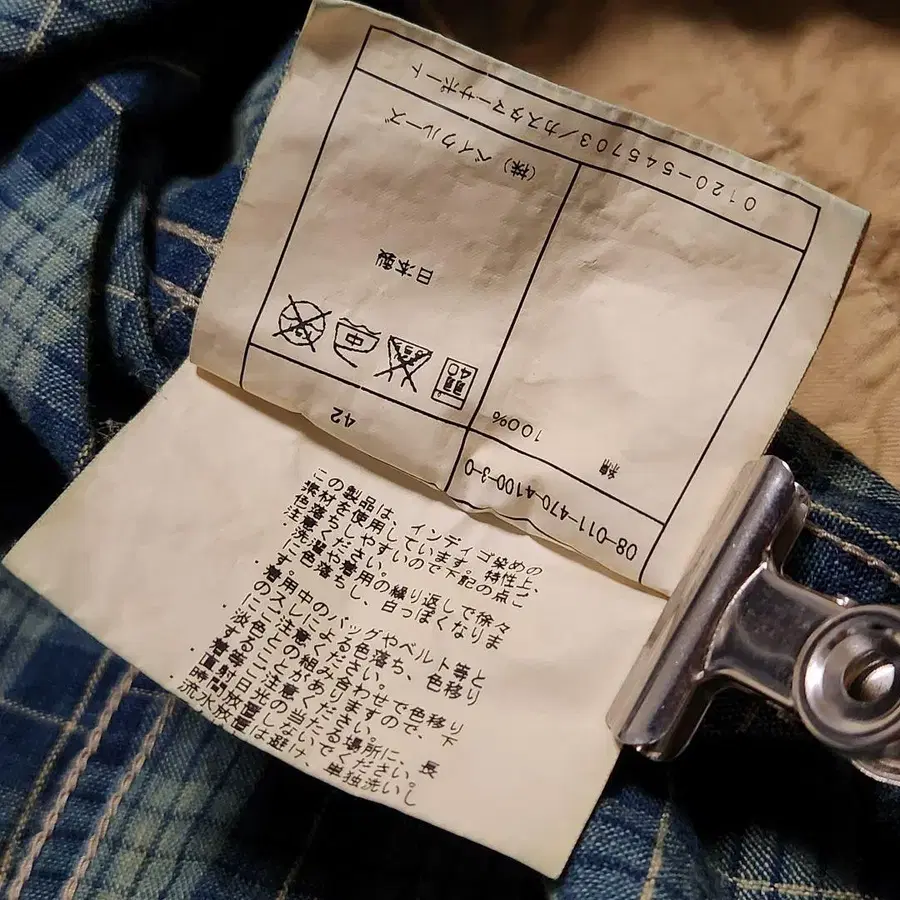 08-011-470-4100-3-0
42
綿 100%
40
中
日本製
(株) ベイクルーズ
0120-545703/カスタマーサポート
この製品は、インディゴ染めの
素材を使用しています。特性上、
色落ちしやすいので下記の点ご
注意ください。
・洗濯や着用の繰り返しで徐々
に色落ちし、白っぽくなりま
・着用中のバッグやベルト等と
のスレによる色落ち、色移り
にご注意ください。
・淡色との組み合わせで色移り
することがありますので、下
着等ご注意ください。
・直射日光の当たる場所に、長
時間放置しないでください。
・流水放置は避け、単独洗いし